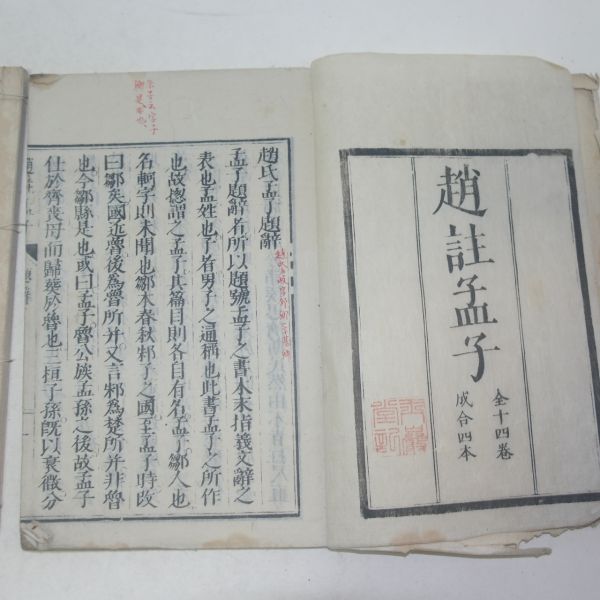 趙註孟子
全十四卷
成合四本
趙氏孟子題辭
孟子題辭者所以題號孟子之書本末指義文辭之
表也孟姓也子者男子之通稱也此書孟子之所作
也故惣謂之孟子其篇目則各自有名孟子鄒人也
名軻字則未聞也鄒本春秋邾子之國至孟子時改
曰鄒矣國近魯後爲魯所并又言邾爲楚所并非魯
也今鄒縣是也或曰孟子魯公族孟孫之後故孟子
仕於齊喪母而歸葬於魯也三桓子孫旣以衰微分